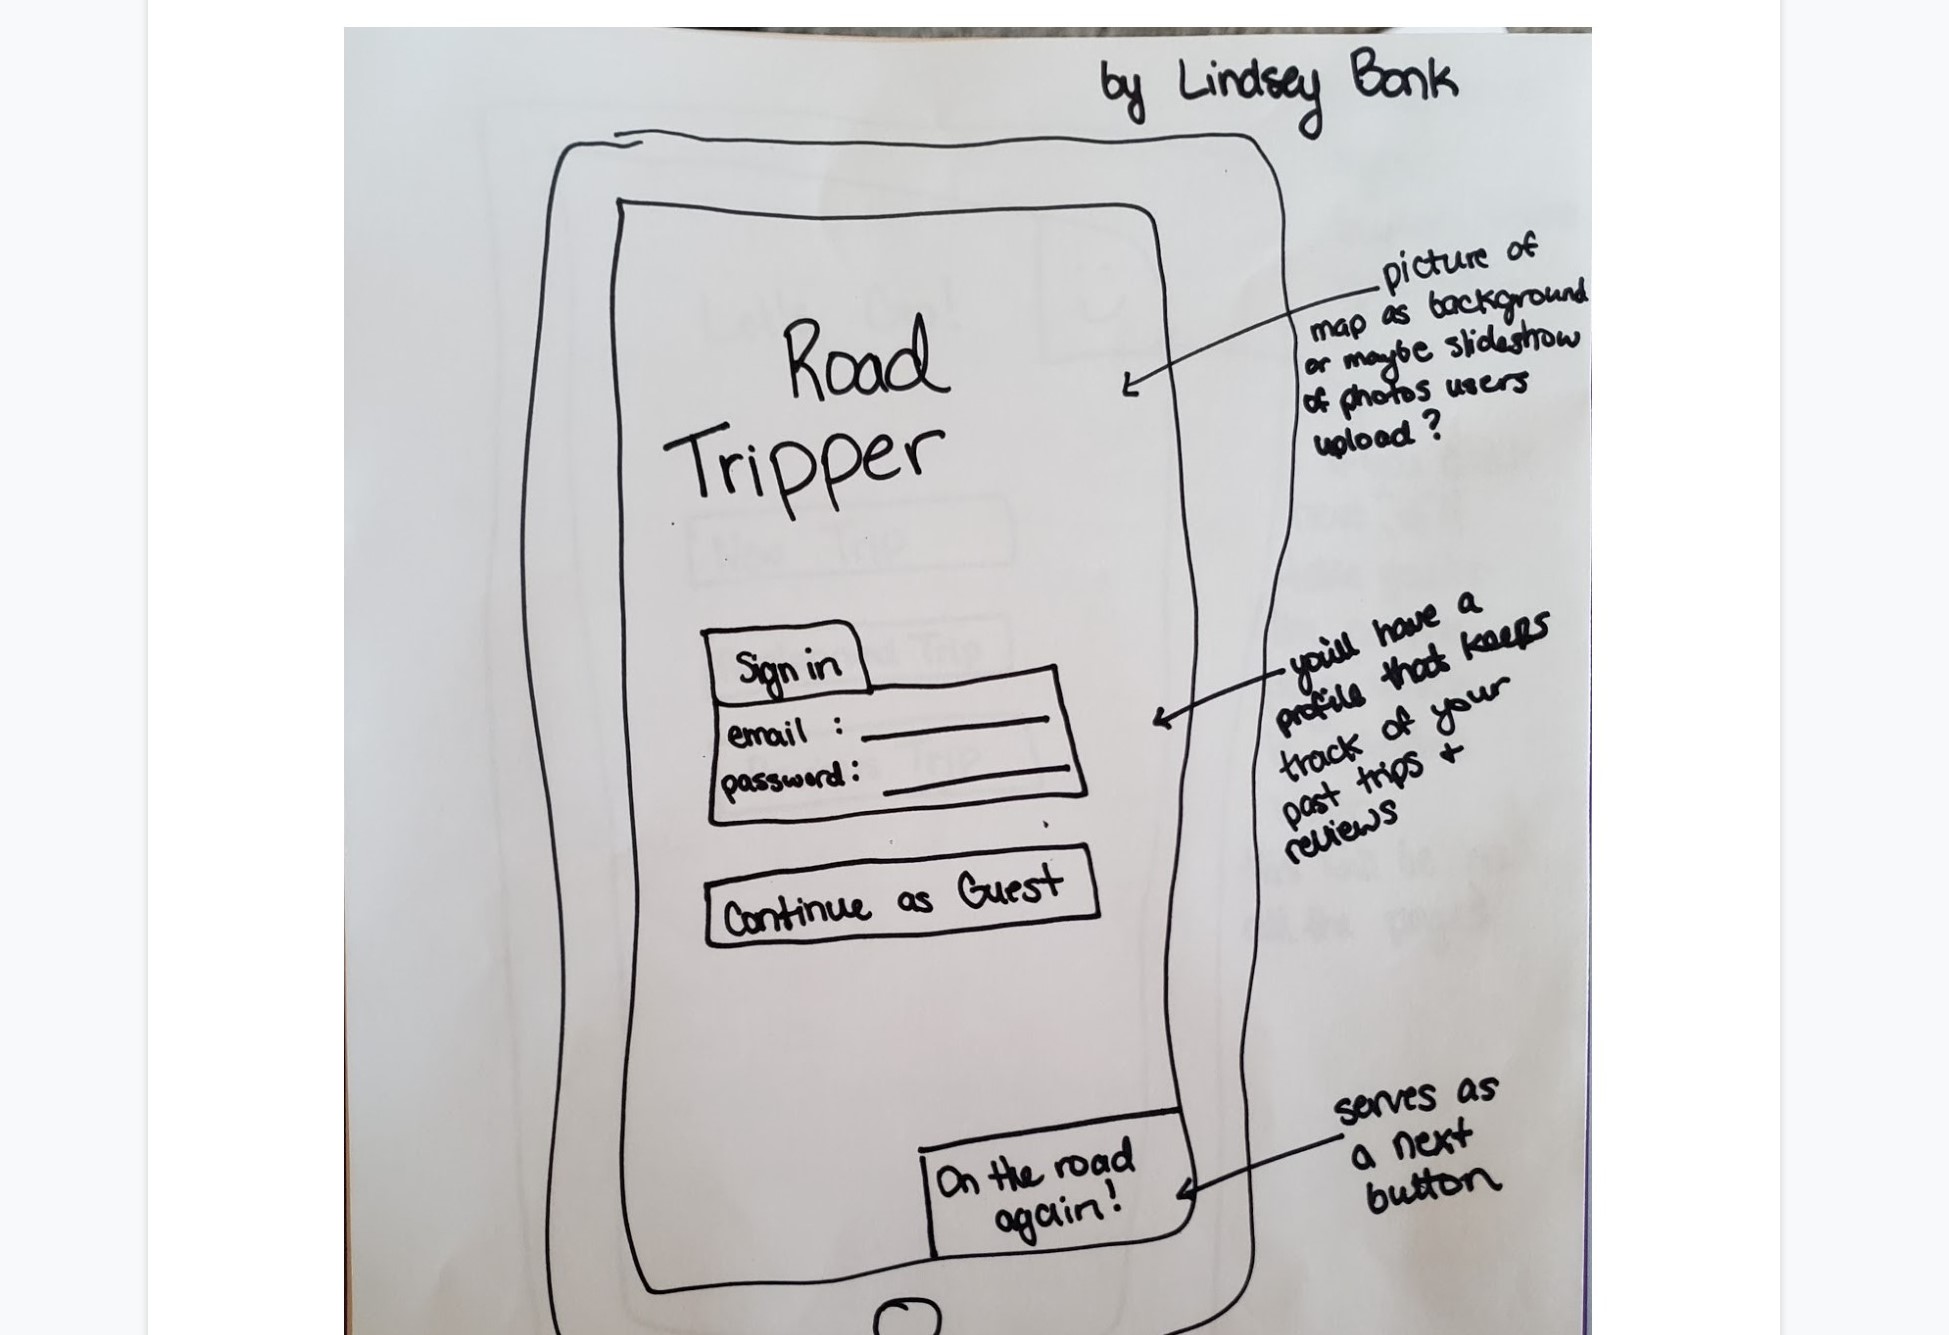 by Lindsey Bonk
Road
Tripper
picture of
map as background
or maybe slideshow
of photos users
upload?
Sign in
email :
password:
you'll have a
profile that keeps
track of your
past trips +
reviews
Continue as Guest
On the road
again!
serves as
a next
button
New Trip